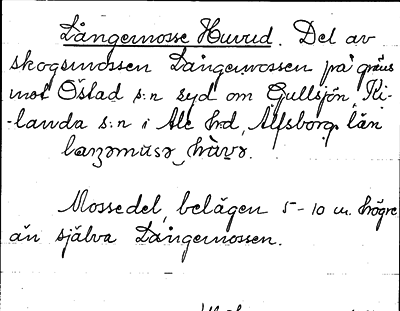 Långemosse Huvud. Del av
skogsmossen Långemossen på gräns
mot Östad s:n syd om Gullsjön, Ki-
-landa s:n i Ale hd, Älfsborgs län
laŋǝmusǝ hùvǝ.
Mossedel, belägen 5-10 m. högre
än själva Långemossen.